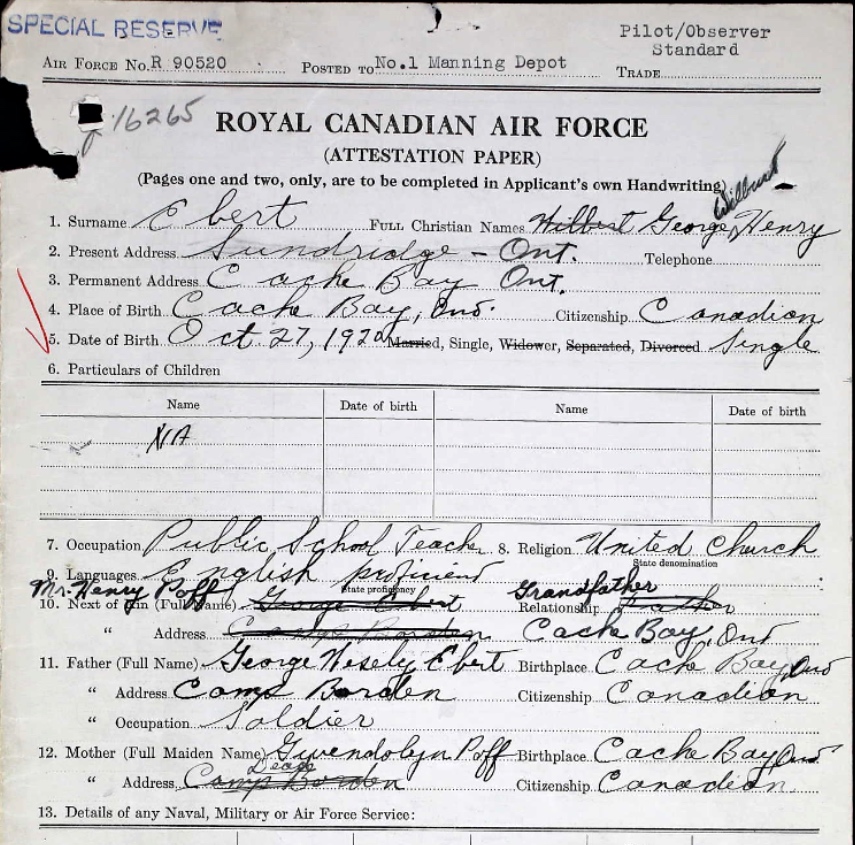 SPECIAL RESERVE
Pilot/Observer
Standard
AIR FORCE No. R 90520 POSTED TO No.1 Manning Depot TRADE
16265
ROYAL CANADIAN AIR FORCE
(ATTESTATION PAPER)
(Pages one and two, only, are to be completed in Applicant's own Handwriting)
Wilburt
1. Surname Ebert FULL Christian Names Wilbert George, Henry
2. Present Address Sundridge - Ont. Telephone
3. Permanent Address Cache Bay Ont.
4. Place of Birth Cache Bay, Ont. Citizenship Canadian
5. Date of Birth Oct. 27, 1920 Married, Single, Widower, Separated, Divorced Single
6. Particulars of Children
Name Date of birth Name Date of birth
N/A
7. Occupation Public School Teacher 8. Religion United Church
State denomination
9. Languages English proficient
State proficiency
Mr. Henry Poff Grandfather
10. Next of Kin (Full Name) George Ebert Relationship Father
" Address Camp Borden Cache Bay, Ont
11. Father (Full Name) George Wesely Ebert Birthplace Cache Bay, Ont
" Address Camp Borden Citizenship Canadian
" Occupation Soldier
12. Mother (Full Maiden Name) Gwendolyn Poff Birthplace Cache Bay, Ont
Dead
" Address Camp Borden Citizenship Canadian
13. Details of any Naval, Military or Air Force Service: